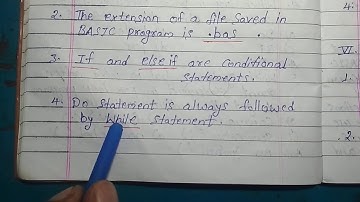 2. The extension of a file saved in
BASIC program is .bas .
3. If and else if are conditional
statements.
4. Do statement is always followed
by While statement.
4.
VI.
1.
2.